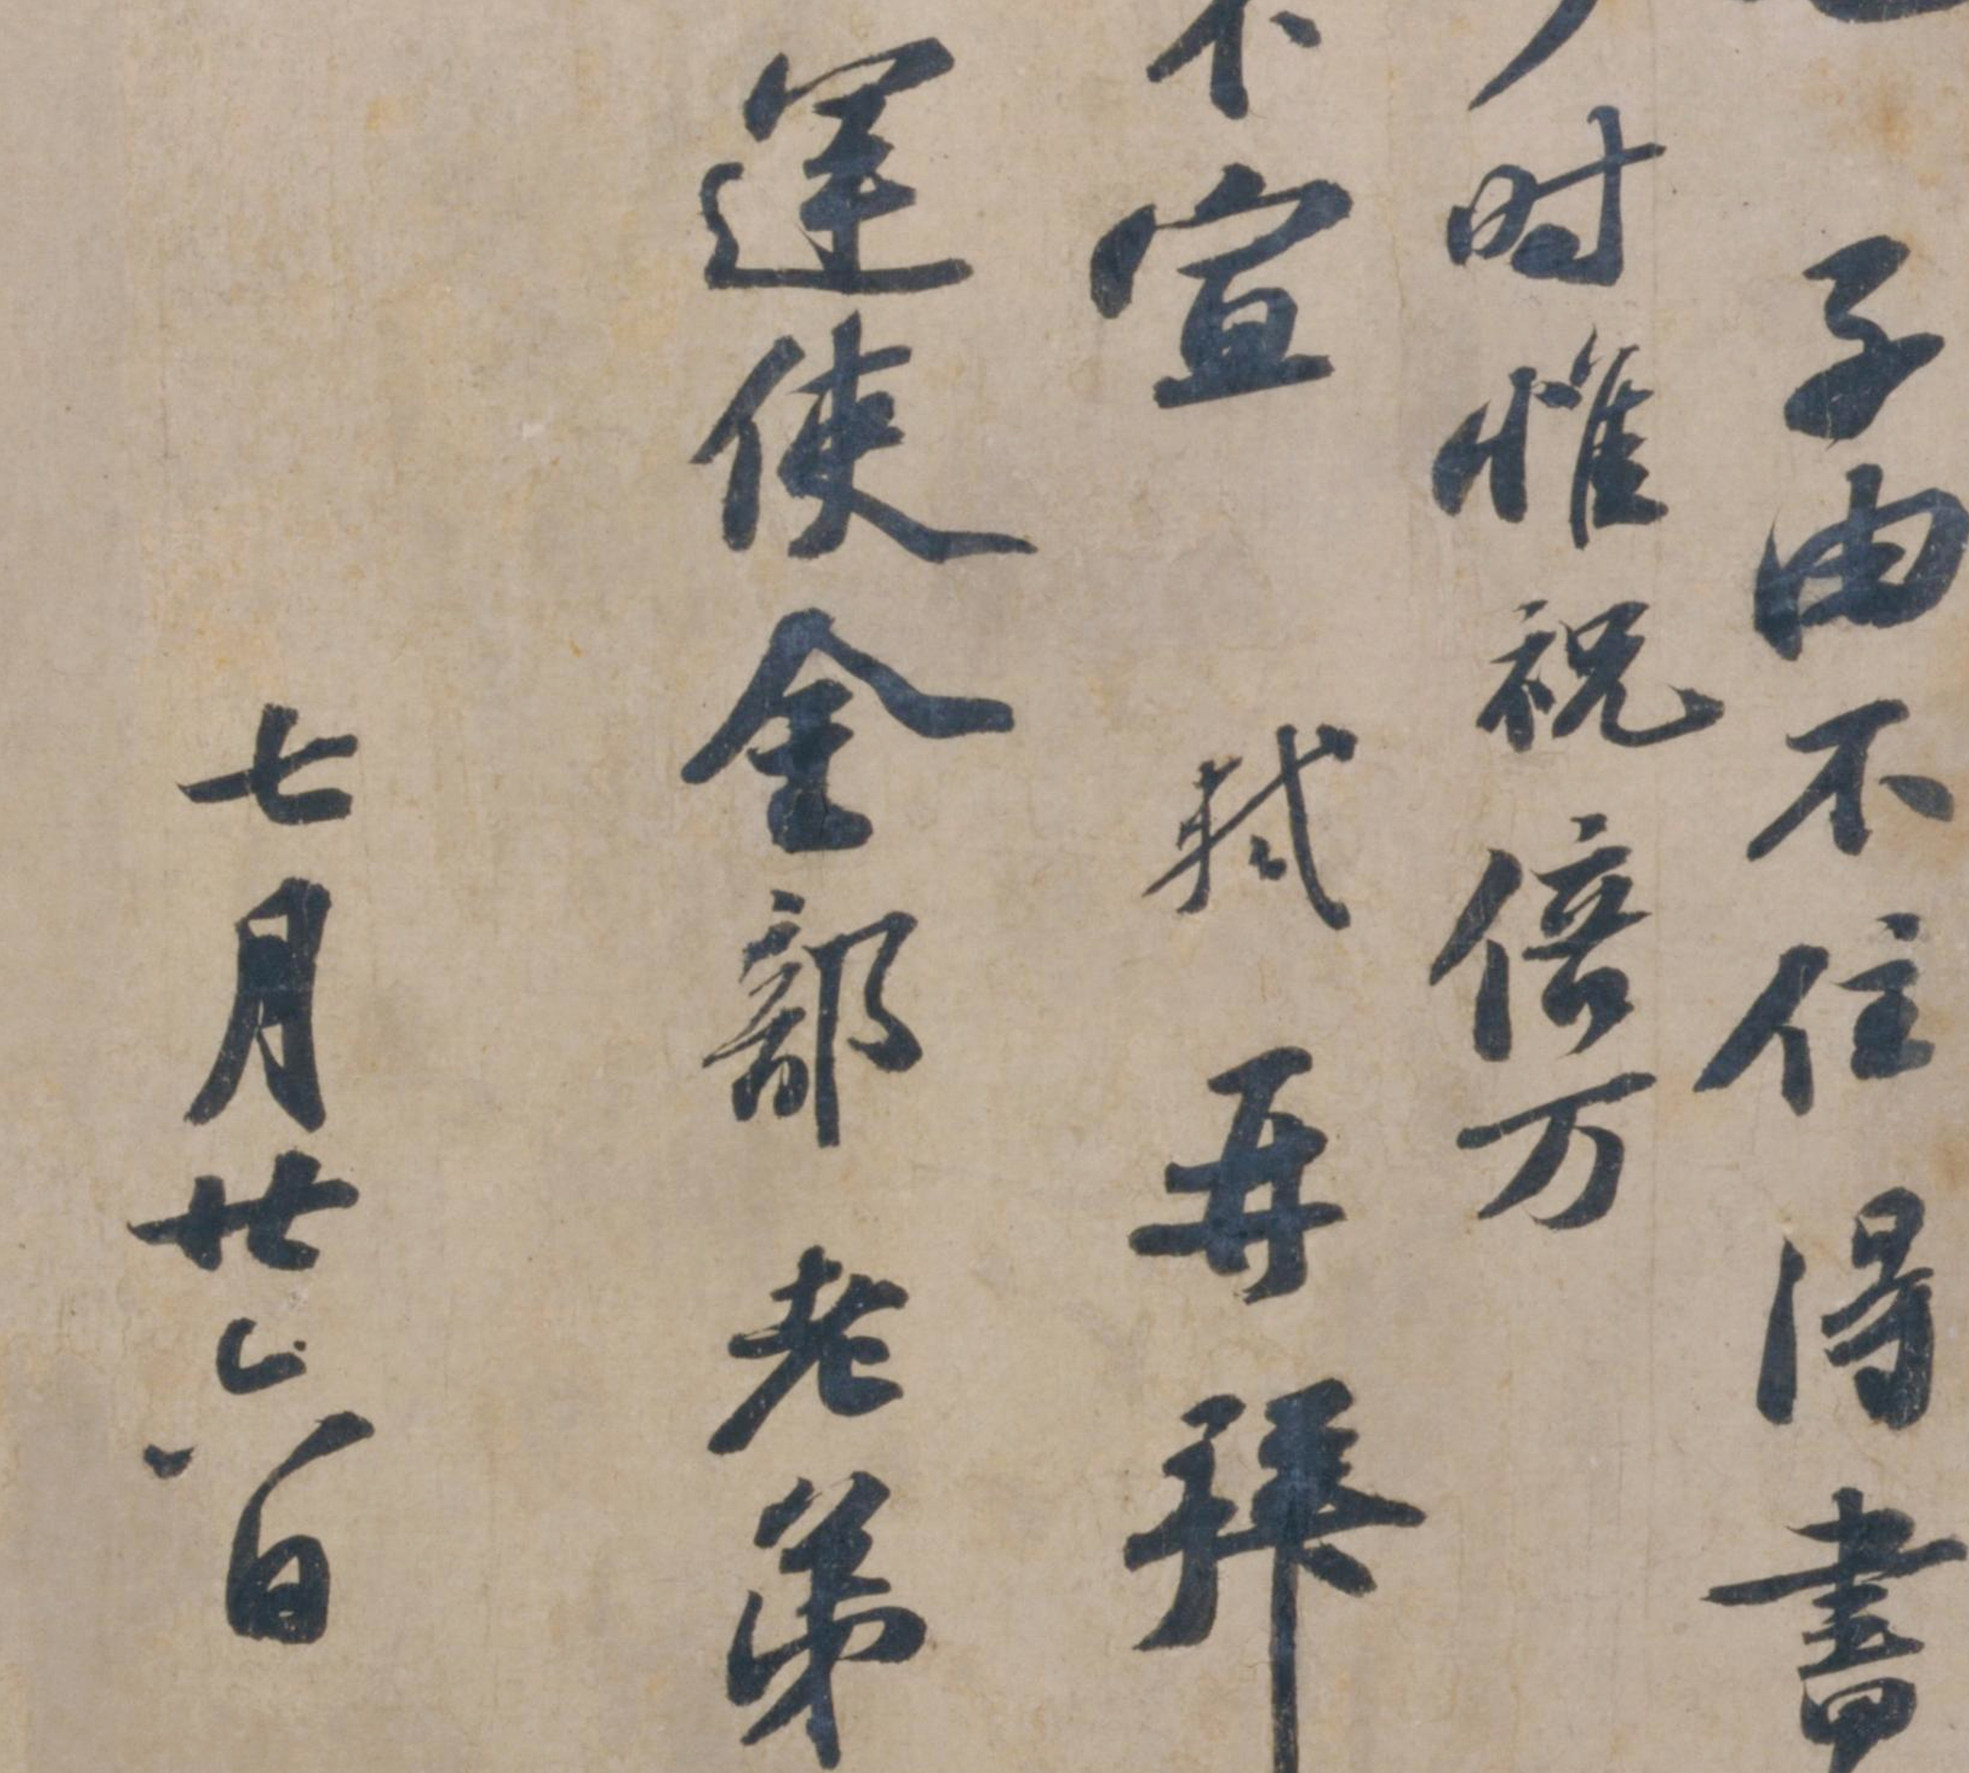 子由不住得書
时惟祝倍万
不宣 軾再拜
運使金部老弟
七月廿六日